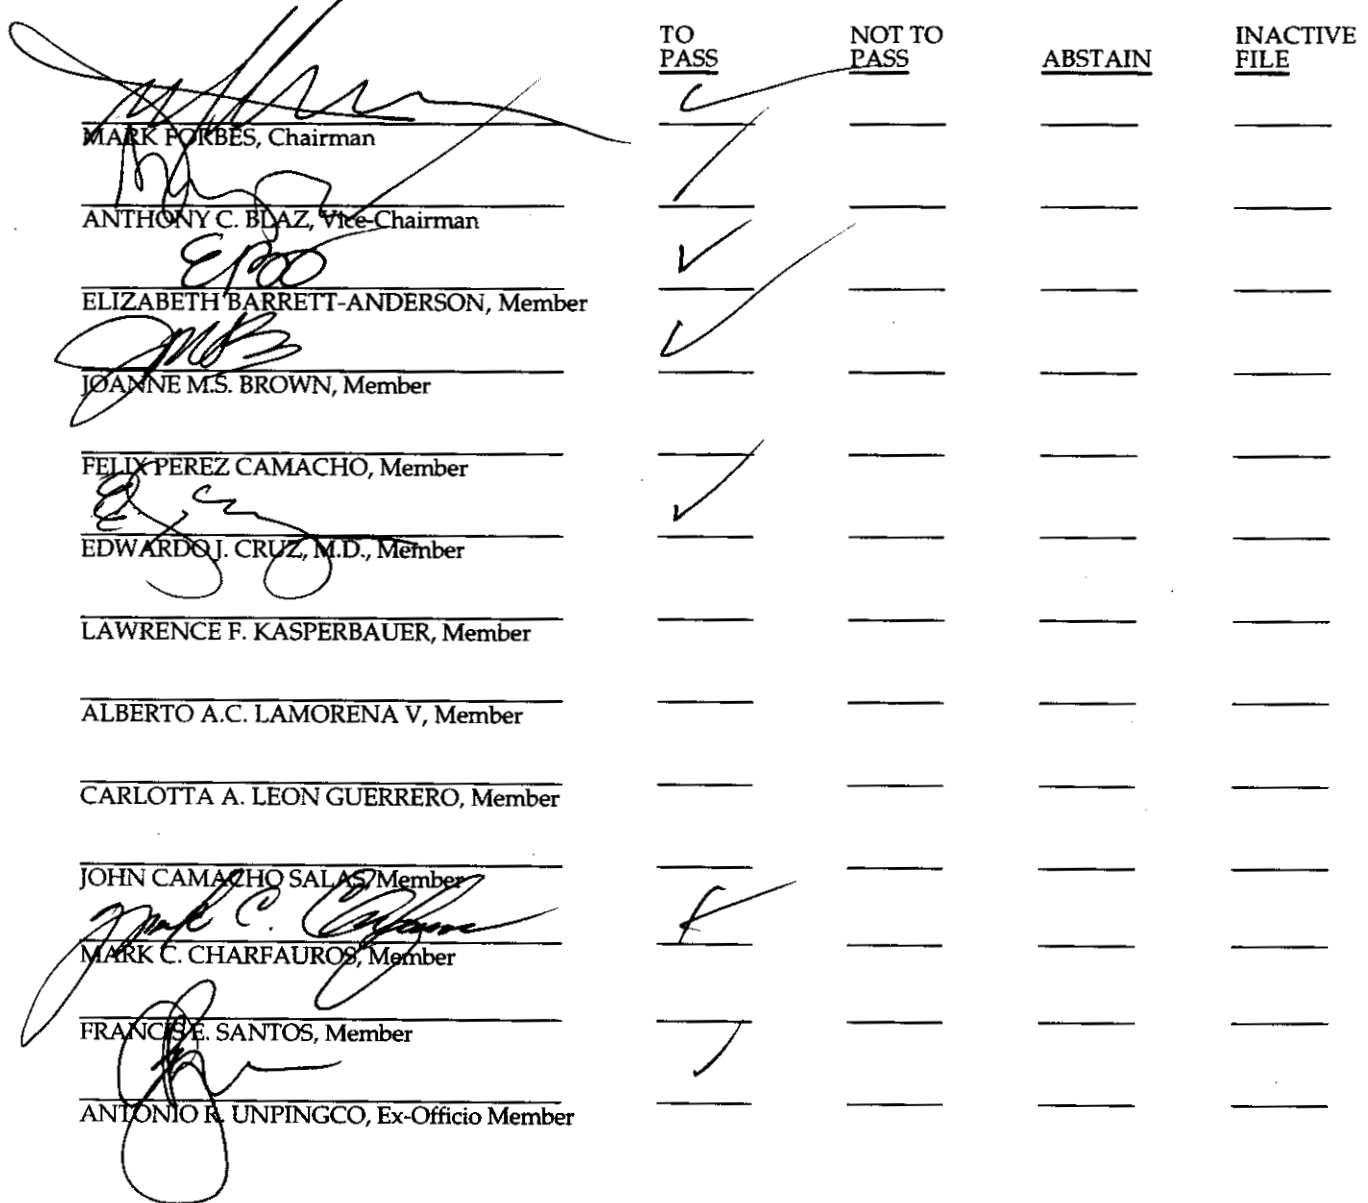 TO PASS NOT TO PASS ABSTAIN INACTIVE FILE
MARK FORBES, Chairman
ANTHONY C. BLAZ, Vice-Chairman
ELIZABETH BARRETT-ANDERSON, Member
JOANNE M.S. BROWN, Member
FELIX PEREZ CAMACHO, Member
EDWARDO J. CRUZ, M.D., Member
LAWRENCE F. KASPERBAUER, Member
ALBERTO A.C. LAMORENA V, Member
CARLOTTA A. LEON GUERRERO, Member
JOHN CAMACHO SALAS, Member
MARK C. CHARFAUROS, Member
FRANCIS E. SANTOS, Member
ANTONIO R. UNPINGCO, Ex-Officio Member